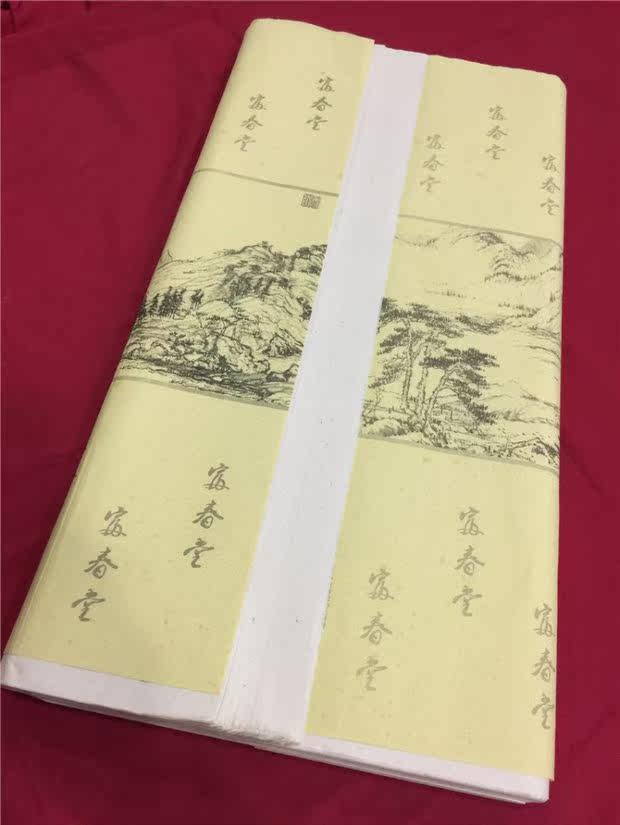 富春堂
富春堂
富春堂
富春堂
富春堂
富春堂
富春堂
富春堂
富春堂
富春堂